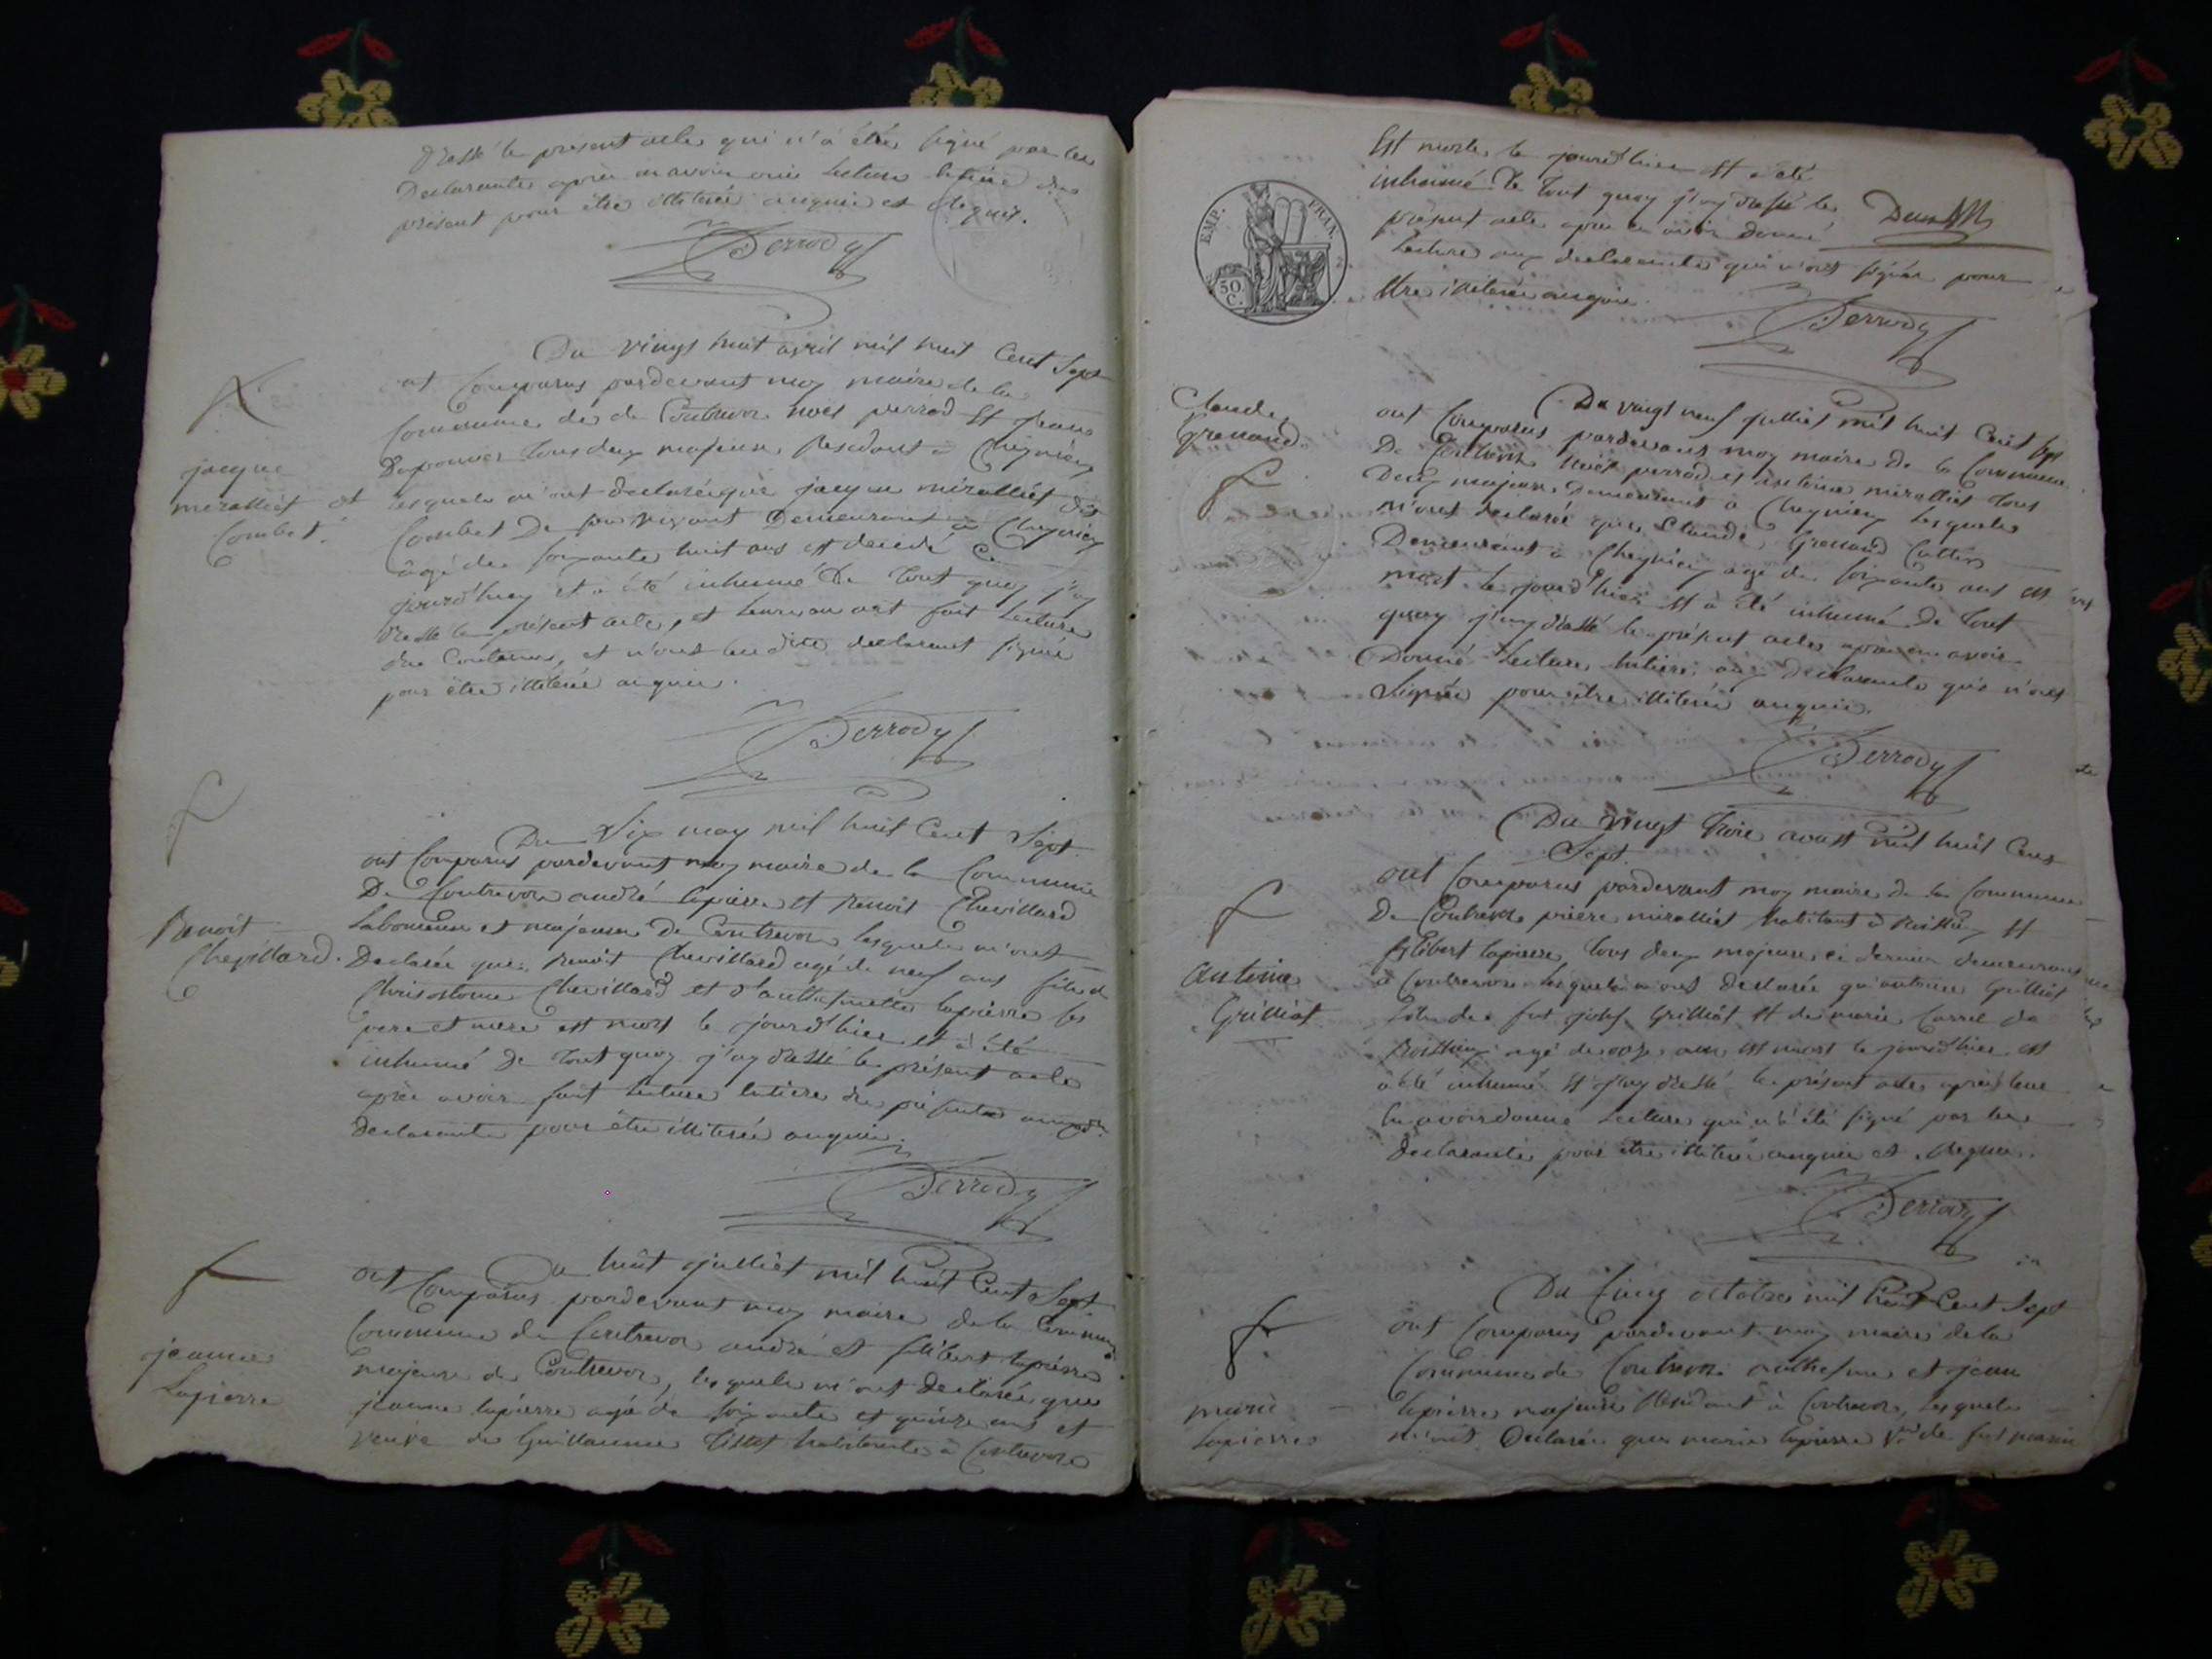 dressé le présent acte qui n'a été signé par les
Declarants après en avoir ouïe lecture entière du
présent pour être illiterés enquis et requis.
Perrody
Du vingt huit avril mil huit Cent Sept
ont Comparus pardevant moy maire de la
Commune de de Contrevoz noël perrod Et Jean
tous deux majeurs Residant à Cheignieu
jacque
miralliet et
Combet.
lesquels m'ont declaré que jacque miralliet dit
Combet De son vivant Demeurant à Cheignieu
âgé de soixante huit ans est decedé Ce
jourd'huy et a été inhumé De tout quoy j'ay
dressé le présent acte, et leur en ont fait lecture
du Contenus, et n'ont les dits declarant signé
pour être illiteré enquis.
Perrody
Du Six may mil huit Cent Sept
ont Comparus pardevant moy maire de la Commune
De Contrevoz andré lapierre et Benoit Chevillard
Benoit
Chevillard.
Laboureurs et majeurs De Contrevoz lesquels m'ont
Declarés que Benoit Chevillard agé de neuf ans fils de
Chrisostome Chevillard et d'anthelmette lapierre ses
pere et mere est mort le jourd'hier et a été
inhumé de tout quoy j'ay dressé le présent acte
après avoir fait lecture entiere du présent aux
declarants pour être illiterés enquis.
Perrody
Du huit julliet mil huit Cent Sept
ont Comparus pardevant moy maire de la Commune
Commune de Contrevoz andré et filibert lapierre
jeanne
Lapierre
majeurs de Contrevoz, lesquels m'ont declarés que
jeanne lapierre agé de soixante et quinze ans et
veuve de Guillaume Tissot habitante à Contrevoz
EMP. FRAN.
50 C.
Est morte le jourd'hier Et a été
inhumé De tout quoy j'ay dressé le
présent acte après en avoir donné
Lecture aux declarants qui n'ont signés pour
Etre illiterés enquis.
Perrody
Claude
grenaud.
Du vingt neuf julliet mil huit Cent Sept
ont Comparus pardevant moy maire de la Commune
De Contrevoz noël perrod et antoine miralliet tous
Deux majeurs Demeurant à Cheignieu lesquels
m'ont declaré que Claude Grenaud
Demeurant à Cheignieu agé de soixante ans est
mort le jourd'hier Et a été inhumé De tout
quoy j'ay dressé le présent acte après en avoir
Donné Lecture Entiere aux declarants qui n'ont
Signés pour être illiterés enquis.
Perrody
Du vingt trois aoust mil huit Cent
Sept
ont Comparus pardevant moy maire de la Commune
De Contrevoz pierre miralliet habitant à Et
filibert lapierre, tous deux majeurs ce dernier demeurant
Antoine
Grilliat
à Contrevoz lesquels m'ont declarés qu'antoine Grilliat
fils de fut josef Grilliat Et de marie Carrel de
agé de onze ans est mort le jourd'hier et
a été inhumé Et j'ay dressé le présent acte après leur
En avoir donné Lecture qui n'a été signé par les
declarants pour être illiterés enquis et requis.
Perrody
Du Cinq octobre mil huit Cent Sept
ont Comparus pardevant moy maire de la
Commune de Contrevoz anthelme et jean
marie
Lapierre
lapierre majeurs Residant à Contrevoz, lesquels
m'ont Declarés que marie lapierre Vve de fut